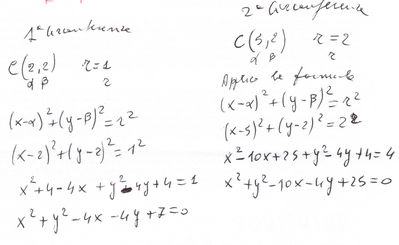 1ª Circonferenza
C(2,2) r=1
α β r
(x-α)²+(y-β)²=r²
(x-2)²+(y-2)²=1²
x²+4-4x+y²-4y+4=1
x²+y²-4x-4y+7=0
2ª Circonferenza
C(5,2) r=2
α β r
Applico la formula
(x-α)²+(y-β)²=r²
(x-5)²+(y-2)²=2²
x²-10x+25+y²-4y+4=4
x²+y²-10x-4y+25=0